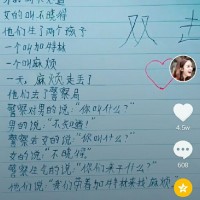 女的叫不晓得
他们生了两个孩子
一个叫加特林
一个叫麻烦
一天，麻烦走丢了
他们去了警察局
警察对男的说：“你叫什么？”
男的说：“不知道！”
警察对女的说：“你叫什么？”
女的说：“不晓得”
警察生气的说：“你们来干什么？”
他们说：“我们带着加特林来找麻烦”
双击
4.5w
608